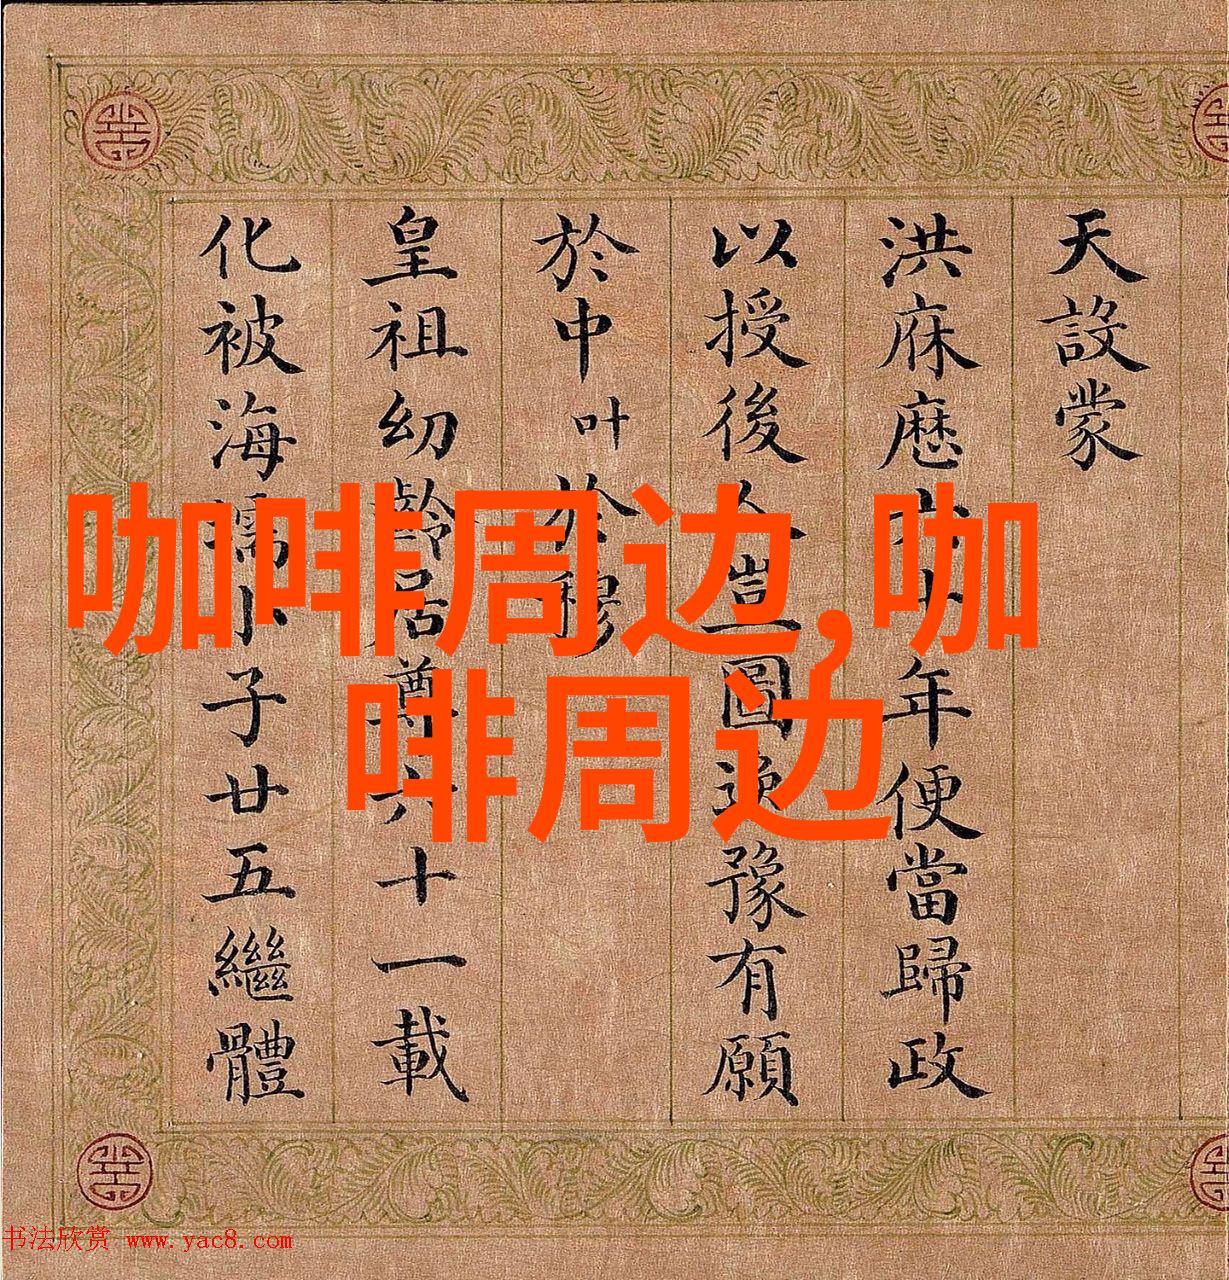 天設蒙
洪庥歷年便當歸政
以授後人豈圖逸豫有願
於中叶於穆
皇祖幼齡居尊六十一載
化被海小子廿五繼體
咖啡周边,咖
啡周边
书法欣赏 www.yac8.com